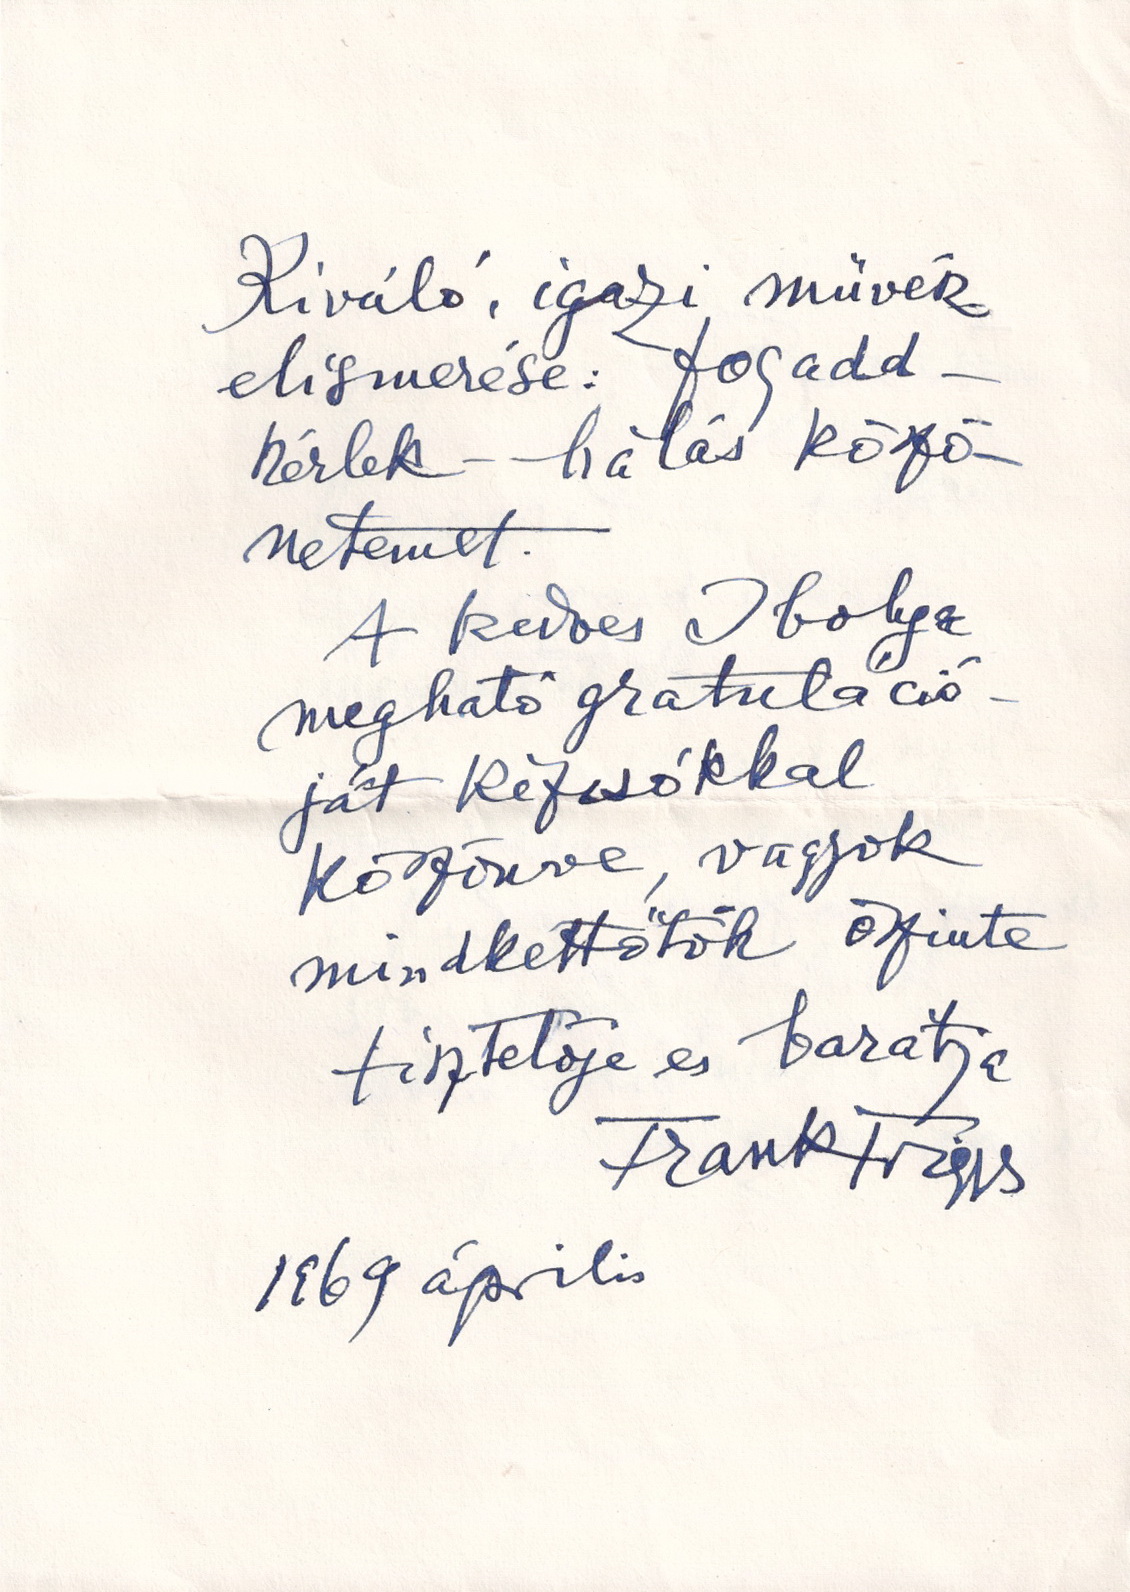 Kiváló, igazi művék
elismerése: fogadd –
kérlek – hálás köszö-
netemet.
A kedves Ibolya
megható gratuláció-
ját kézcsókkal
köszönve, vagyok
mindkettőtök őszinte
tisztelője es barátja
Frank Frigyes
1969 április